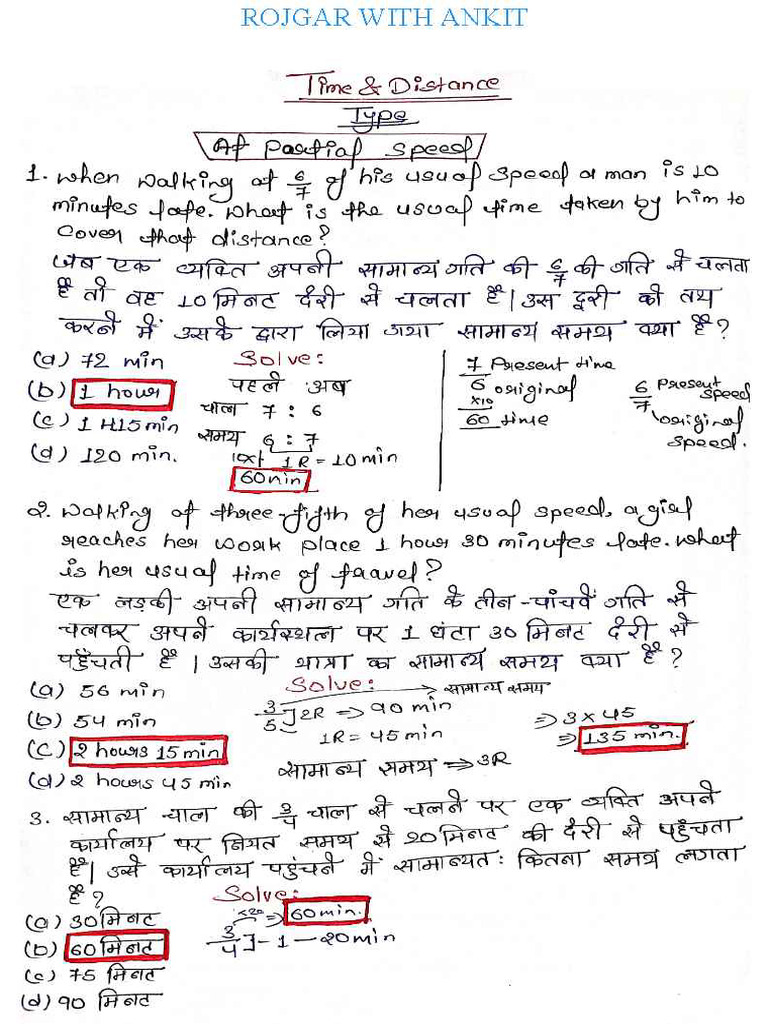 ROJGAR WITH ANKIT
Time & Distance
Type
At Partial Speed
1. When walking at 6/7 of his usual speed a man is 10
minutes late. What is the usual time taken by him to
cover that distance?
जब एक व्यक्ति अपनी सामान्य गति की 6/7 की गति से चलता
है तो वह 10 मिनट देरी से चलता है। उस दूरी को तय
करने में उसके द्वारा लिया गया सामान्य समय क्या है?
(a) 72 min
(b) 1 hour
(c) 1 H 15 min
(d) 120 min.
Solve:
पहले अब
चाल 7 : 6
समय 6 : 7
10x↑ 1R = 10 min
60 min
7 Present time
6 original
x10
60 time
6/7 Present speed
original speed.
2. Walking at three-fifth of her usual speed, a girl
reaches her work place 1 hour 30 minutes late. What
is her usual time of travel?
एक लड़की अपनी सामान्य गति के तीन-पांचवें गति से
चलकर अपने कार्यस्थल पर 1 घंटा 30 मिनट देरी से
पहुँचती है। उसकी यात्रा का सामान्य समय क्या है?
(a) 56 min
(b) 54 min
(c) 2 hours 15 min
(d) 2 hours 45 min
Solve:
→ सामान्य समय
3/5 ] 2R => 90 min
1R = 45 min
सामान्य समय => 3R
=> 3 x 45
=> 135 min.
3. सामान्य चाल की 3/4 चाल से चलने पर एक व्यक्ति अपने
कार्यालय पर नियत समय से 20 मिनट की देरी से पहुँचता
है। उसे कार्यालय पहुंचने में सामान्यतः कितना समय लगता
है?
(a) 30 मिनट
(b) 60 मिनट
(c) 75 मिनट
(d) 90 मिनट
Solve:
x20 => 60 min.
3/4 ] - 1 — 20 min